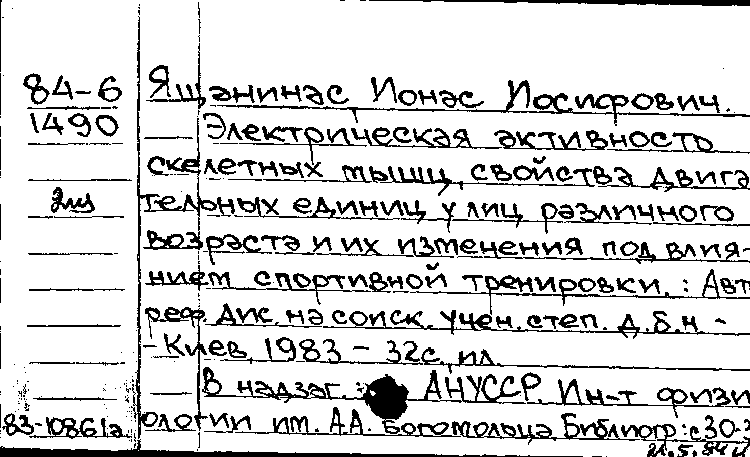 84-6 Ящанинас, Ионас Иосифович.
1490 Электрическая активность
скелетных мышц, свойства двига
2 тельных единиц у лиц различного
возраста и их изменения под влия-
нием спортивной тренировки. : Авт
реф. дис. на соиск. учен. степ. д.б.н -
- Киев, 1983 - 32с, ил.
В надзаг.: АНУССР. Ин-т физи
83-10861а ологии им. А.А. Богомольца. Библиогр: с 30-3
21.5.84